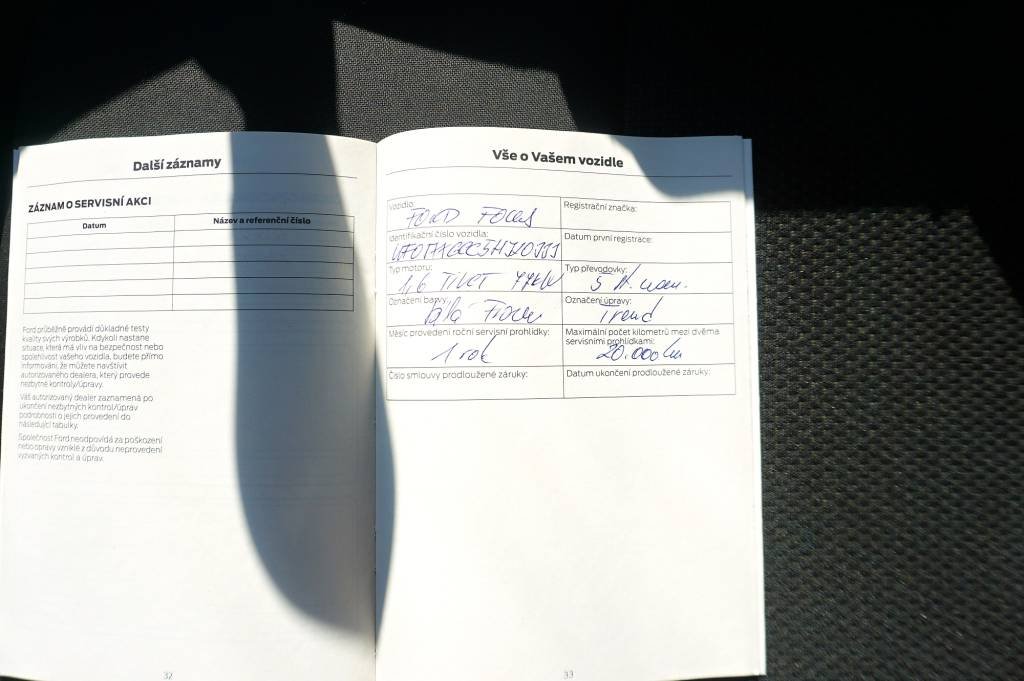 Další záznamy
ZÁZNAM O SERVISNÍ AKCI
Datum
Název a referenční číslo
Ford průběžně provádí důkladné testy
kvality svých výrobků. Kdykoli nastane
situace, která má vliv na bezpečnost nebo
spolehlivost vašeho vozidla, budete přímo
informováni, že můžete navštívit
autorizovaného dealera, který provede
nezbytné kontroly/úpravy.
Váš autorizovaný dealer zaznamená po
ukončení nezbytných kontrol/úprav
podrobnosti o jejich provedení do
následující tabulky.
Společnost Ford neodpovídá za poškození
nebo opravy vzniklé z důvodu neprovedení
vyzvaných kontrol a úprav.
32
Vše o Vašem vozidle
Vozidlo:
FORD FOCUS
Registrační značka:
Identifikační číslo vozidla:
Datum první registrace:
Typ motoru:
1,6 TiVCT 77kW
Typ převodovky:
5 st. man.
Označení barvy:
Bílá Frozen
Označení úpravy:
Trend
Měsíc provedení roční servisní prohlídky:
1 rok
Maximální počet kilometrů mezi dvěma
servisními prohlídkami:
20.000 km
Číslo smlouvy prodloužené záruky:
Datum ukončení prodloužené záruky:
33